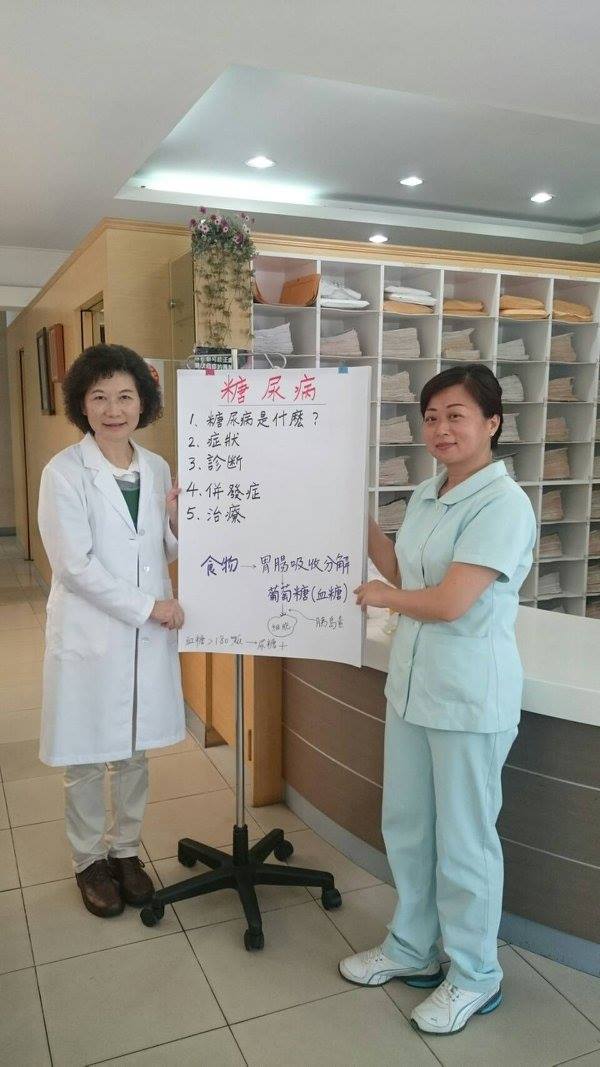 糖尿病
1. 糖尿病是什麼？
2. 症狀
3. 診斷
4. 併發症
5. 治療
食物→胃腸吸收分解
葡萄糖(血糖)
細胞←胰島素
血糖>180
→尿糖+